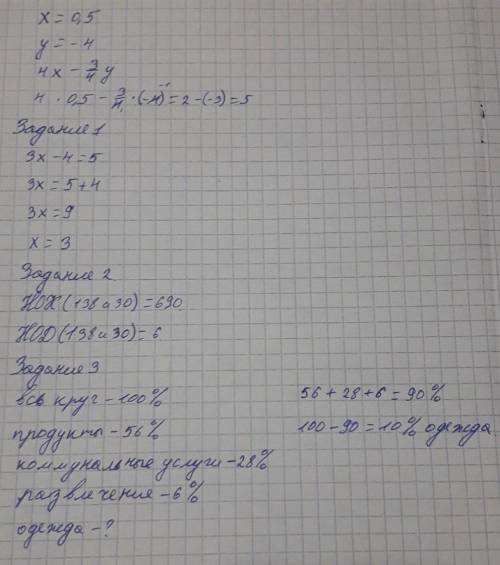 x = 0,5
y = -4
4x - 3/4 y
4 · 0,5 - 3/4 · (-4)⁻¹ = 2 - (-3) = 5
Задание 1
3x - 4 = 5
3x = 5 + 4
3x = 9
x = 3
Задание 2
НОК (138 и 30) = 690
НОД (138 и 30) = 6
Задание 3
всь круг - 100%
продукты - 56%
коммунальные услуги - 28%
развлечение - 6%
одежда - ?
56 + 28 + 6 = 90%
100 - 90 = 10% одежда.